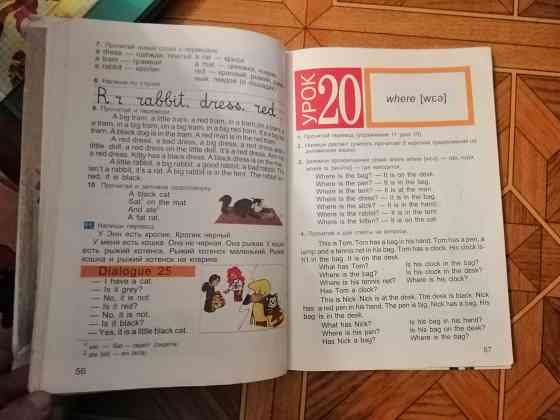 7. Прочитай новые слова с переводом.
a dress — одежда, платье
a cat — кошка
a tram — трамвай
a mat — циновка, коврик
a rabbit — кролик
red — красный, рыжий,
8. Напиши по строке
R r rabbit, dress, red
9. Прочитай и переведи.
A big tram, a little tram, a red tram, in a tram, on a tram,
a tram, in a big tram, on a big tram, in a big red tram.
A black dog is in the tram. A red man is in the tram.
A red dress, a bad dress, a big dress, a red dress,
little doll, a red dress on the little doll. It's a red dress.
a red dress. Kitty has a black dress. A black dress is on the
A little rabbit, a big rabbit, a good rabbit, a bad rabbit.
isn't a rabbit, it's a rat. A big rabbit is in the tent. The rabbit
red, it is black.
10 Прочитай и запомни скороговорку
A black cat
Sat¹ on the mat
And ate²
A fat rat.
11. Напиши перевод.
У Энн есть кролик. Кролик черный.
У меня есть кошка. Она не черная. Она рыжая. У кошки
есть рыжий котенок. Рыжий котенок маленький. Рыжая
кошка и рыжий котенок на коврике.
Dialogue 25
— I have a cat.
— Is it grey?
— No, it is not.
— Is it red?
— No, it is not.
— Is it black?
— Yes, it is a little black cat.
56
УРОК 20
where [wɛə]
1. Прочитай перевод (упражнение 11 урок 19).
3.
where [wɛə] — где, куда,
where is [wɛəriz] — где находится.
Where is the bag? — It is on the desk.
Where is the pen? — It is in the bag.
Where is the tent? — It is at the man.
Where is the dress? — It is on the bed.
Where is the stick? — It is in the hand.
Where is the rabbit? — It is in the tent.
Where is the kitten? — It is on the cat.
4. Прочитай и дай ответы на вопросы.
This is Tom. Tom has a bag in his hand. Tom has a pen, a
lamp and a tennis net in his bag. Tom has a clock. His clock is
in the bag. It is on the desk.
What has Tom?
Is his clock in the bag?
Where is the bag?
Is his clock in the desk?
Where is his tennis net?
Where is his clock?
Has Tom a clock?
This is Nick. Nick is at the desk. The desk is black. Nick
has a red pen in his hand. The pen is big. Nick has a bag. His
bag is in the desk.
What has Nick?
Is his bag in his hand?
Where is his pen?
Is his bag on the desk?
Has Nick a bag?
Where is the bag?
57